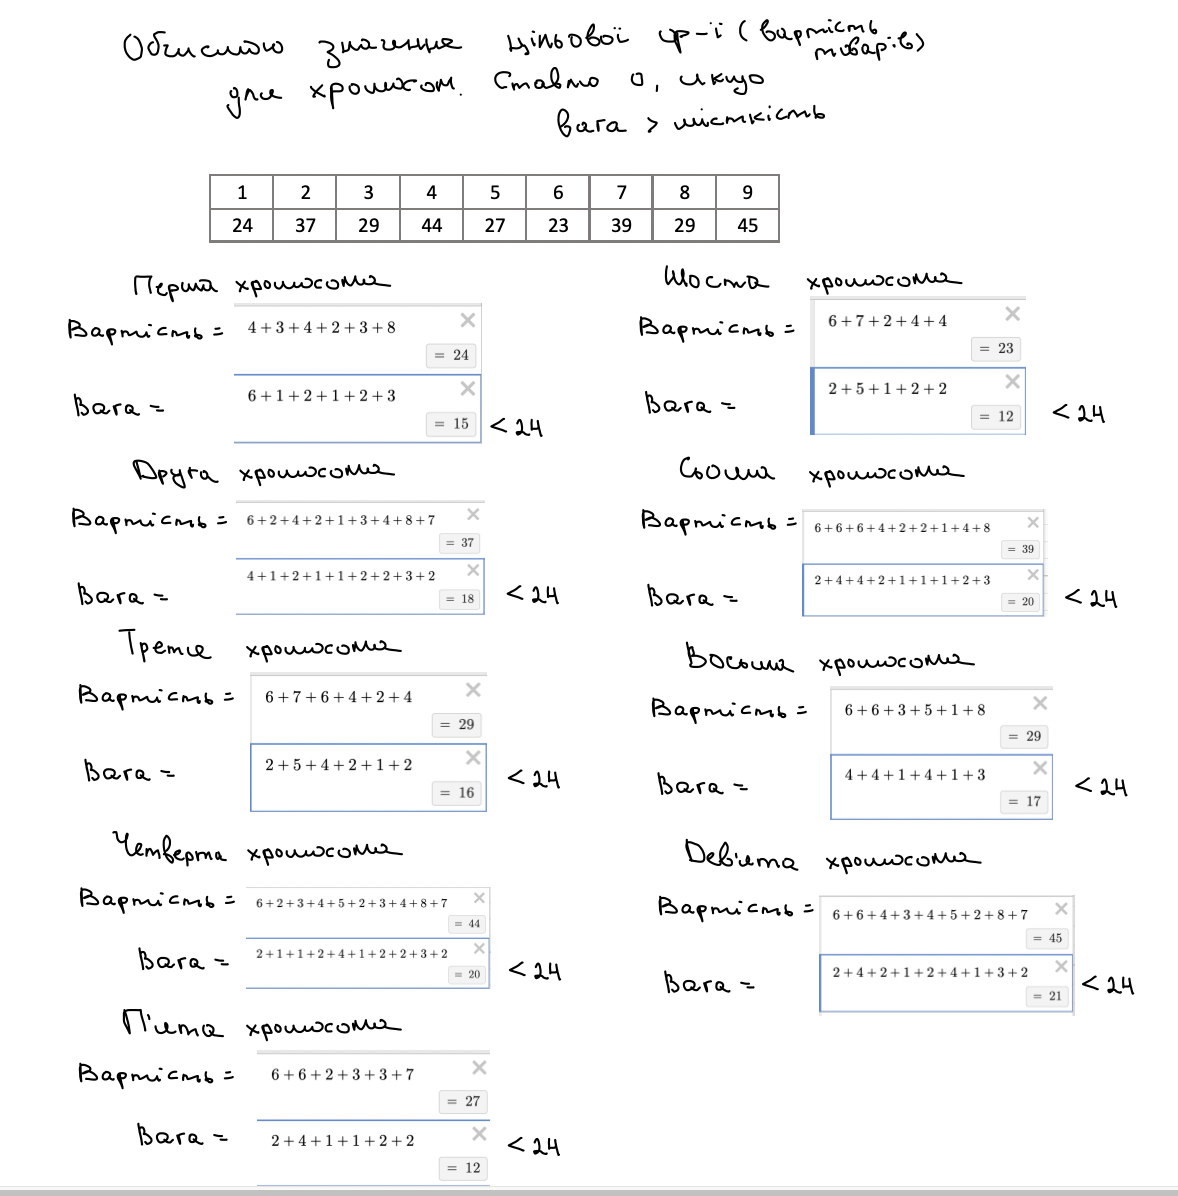 Обчислюю значення цільової ф-ї (вартість товарів)
для хромосом. Ставимо 0, якщо
вага > місткість
1 2 3 4 5 6 7 8 9
24 37 29 44 27 23 39 29 45
Перша хромосома
Вартість = 4+3+4+2+3+8
= 24
Вага = 6+1+2+1+2+3
= 15 < 24
Друга хромосома
Вартість = 6+2+4+2+1+3+4+8+7
= 37
Вага = 4+1+2+1+1+2+2+3+2
= 18 < 24
Третя хромосома
Вартість = 6+7+6+4+2+4
= 29
Вага = 2+5+4+2+1+2
= 16 < 24
Четверта хромосома
Вартість = 6+2+3+4+5+2+3+4+8+7
= 44
Вага = 2+1+1+2+4+1+2+2+3+2
= 20 < 24
П'ята хромосома
Вартість = 6+6+2+3+3+7
= 27
Вага = 2+4+1+1+2+2
= 12 < 24
Шоста хромосома
Вартість = 6+7+2+4+4
= 23
Вага = 2+5+1+2+2
= 12 < 24
Сьома хромосома
Вартість = 6+6+6+4+2+2+1+4+8
= 39
Вага = 2+4+4+2+1+1+1+2+3
= 20 < 24
Восьма хромосома
Вартість = 6+6+3+5+1+8
= 29
Вага = 4+4+1+4+1+3
= 17 < 24
Дев'ята хромосома
Вартість = 6+6+4+3+4+5+2+8+7
= 45
Вага = 2+4+2+1+2+4+1+3+2
= 21 < 24